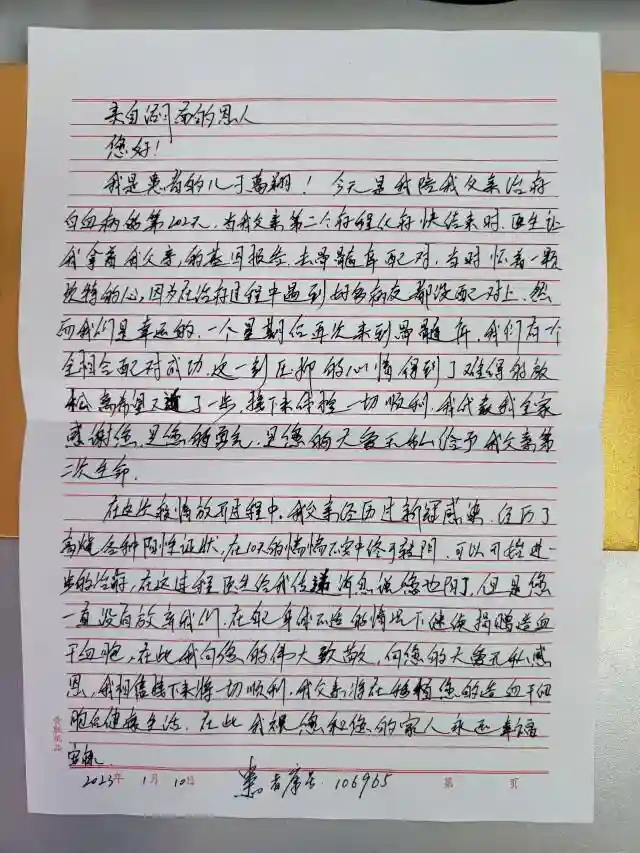 来自远方的恩人
您好！
我是患者的儿子万翔！今天是我陪我父亲治疗
白血病的第202天，当我父亲第二个疗程化疗快结束时，医生让
我拿着我父亲的基因报告去骨髓库配对，当时怀着一颗
的心，因为在治疗过程中遇到好多病友都没配对上，然
而我们是幸运的，一个星期后再次来到骨髓库，我们有一个
全相合配对成功，这一刻压抑的心情得到了难得的放
松，离希望又近了一步，接下来体检一切顺利，我代表我全家
感谢您，是您的勇气，是您的大爱无私给予我父亲第
二次生命．
在这次疫情放开过程中，我父亲经历过新冠感染，经历了
高烧各种阳性症状，在10天的惴惴不安中终于转阴，可以开始进一
步的治疗，在这过程医生给我传递消息说您也阳了，但是您
一直没有放弃我们，在配身体不适的情况下继续捐赠造血
干细胞，在此我向您的伟大致敬，向您的大爱无私感
恩，我相信接下来将一切顺利，我父亲将在移植您的造血干细
胞后健康生活，在此我祝您和您的家人永远幸福
安康．
2023年 1月 10日 患者序号：106965 第 页